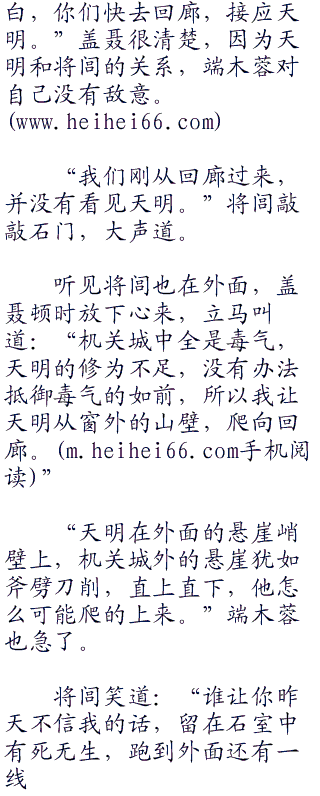 白，你们快去回廊，接应天
明。”盖聂很清楚，因为天
明和将闾的关系，端木蓉对
自己没有敌意。
(www.heihei66.com)
“我们刚从回廊过来，
并没有看见天明。”将闾敲
敲石门，大声道。
听见将闾也在外面，盖
聂顿时放下心来，立马叫
道：“机关城中全是毒气，
天明的修为不足，没有办法
抵御毒气的如前，所以我让
天明从窗外的山壁，爬向回
廊。(m.heihei66.com手机阅
读)”
“天明在外面的悬崖峭
壁上，机关城外的悬崖犹如
斧劈刀削，直上直下，他怎
么可能爬的上来。”端木蓉
也急了。
将闾笑道：“谁让你昨
天不信我的话，留在石室中
有死无生，跑到外面还有一
线